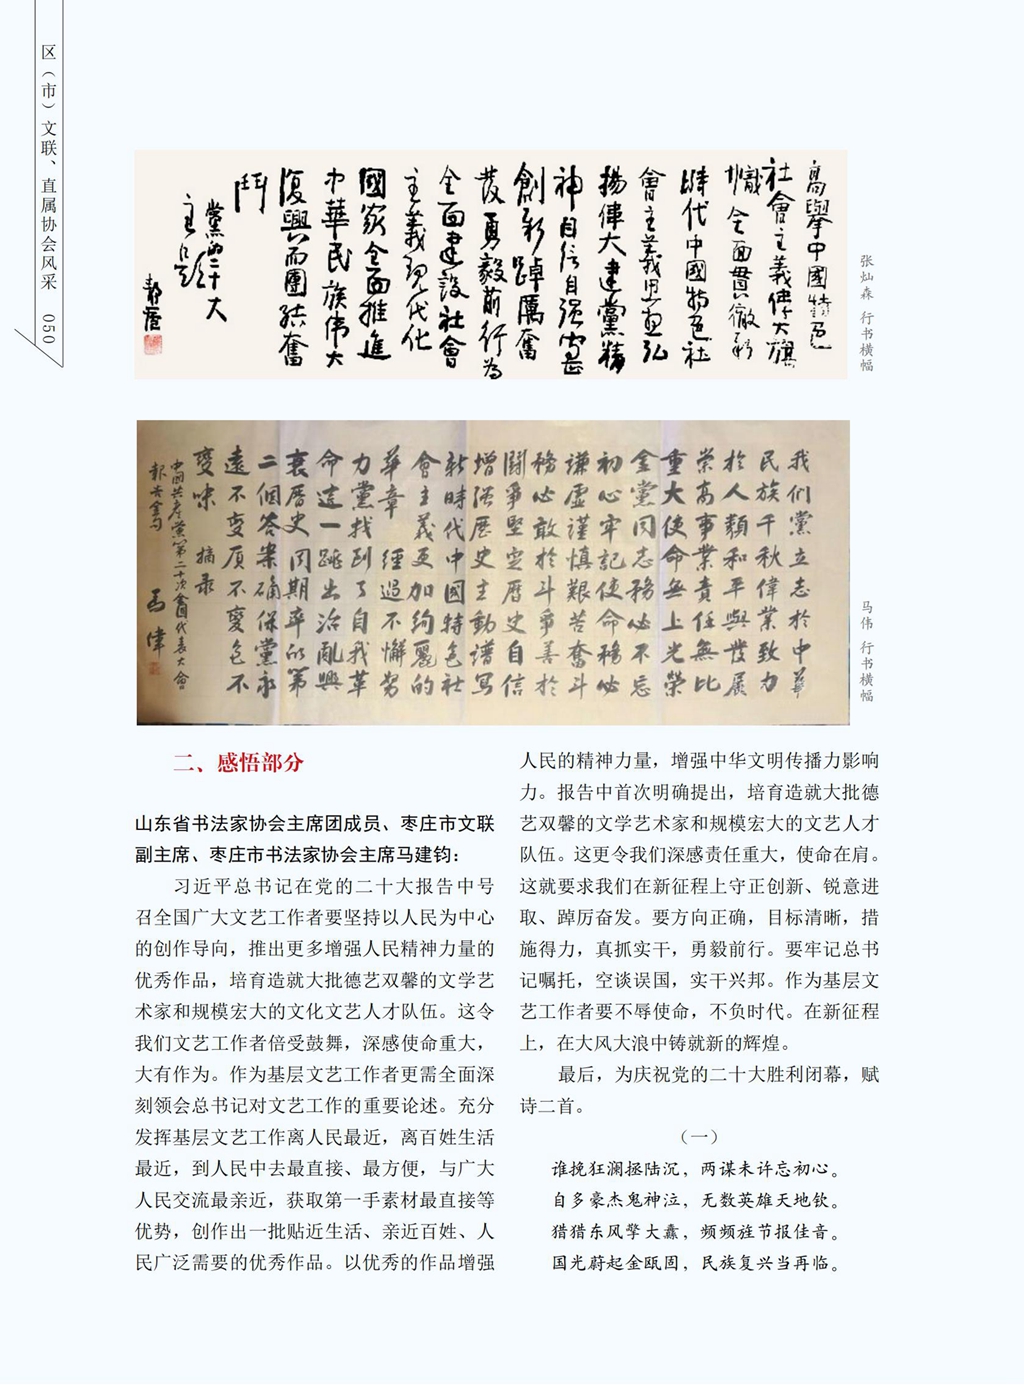 区（市）文联、直属协会风采 050
高舉中國特色
社會主義偉大旗
幟全面貫徹新
時代中國特色社
會主義思想弘
揚偉大建黨精
神自信自强守正
創新踔厲奮
發勇毅前行为
全面建設社會
主義現代化
國家全面推進
中華民族偉大
復興而團结奮
鬥
黨的二十大
主題
张灿森 行书横幅
我们黨立志於中華
民族千秋偉業致力
於人類和平與發展
崇高事業責任無比
重大使命無上光榮
全黨同志務必不忘
初心牢記使命務必
謙虚謹慎艱苦奮斗
務必敢於斗爭善於
鬪爭堅定曆史自信
增强歷史主動譜寫
新時代中國特色社
會主義更加绚麗的
華章 經過不懈努
力黨找到了自我革
命這一跳出治亂興
衰曆史周期率的第
二個答案确保黨永
遠不變质不變色不
變味 摘录
中國共產黨第二十次全國代表大會
報告金句
馬偉
马伟 行书横幅
二、感悟部分
山东省书法家协会主席团成员、枣庄市文联
副主席、枣庄市书法家协会主席马建钧：
习近平总书记在党的二十大报告中号
召全国广大文艺工作者要坚持以人民为中心
的创作导向，推出更多增强人民精神力量的
优秀作品，培育造就大批德艺双馨的文学艺
术家和规模宏大的文化文艺人才队伍。这令
我们文艺工作者倍受鼓舞，深感使命重大，
大有作为。作为基层文艺工作者更需全面深
刻领会总书记对文艺工作的重要论述。充分
发挥基层文艺工作离人民最近，离百姓生活
最近，到人民中去最直接、最方便，与广大
人民交流最亲近，获取第一手素材最直接等
优势，创作出一批贴近生活、亲近百姓、人
民广泛需要的优秀作品。以优秀的作品增强
人民的精神力量，增强中华文明传播力影响
力。报告中首次明确提出，培育造就大批德
艺双馨的文学艺术家和规模宏大的文艺人才
队伍。这更令我们深感责任重大，使命在肩。
这就要求我们在新征程上守正创新、锐意进
取、踔厉奋发。要方向正确，目标清晰，措
施得力，真抓实干，勇毅前行。要牢记总书
记嘱托，空谈误国，实干兴邦。作为基层文
艺工作者要不辱使命，不负时代。在新征程
上，在大风大浪中铸就新的辉煌。
最后，为庆祝党的二十大胜利闭幕，赋
诗二首。
（一）
谁挽狂澜拯陆沉，两谋未许忘初心。
自多豪杰鬼神泣，无数英雄天地钦。
猎猎东风擎大纛，频频旌节报佳音。
国光蔚起金瓯固，民族复兴当再临。